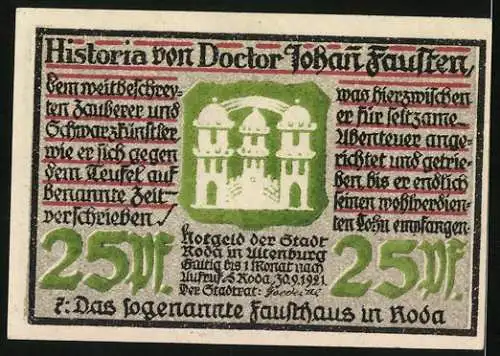 Historia von Doctor Johañ Fausten,
dem weitbeschrey-
ten Zauberer und
Schwarzkünstler
wie er sich gegen
dem Teufel auf
benannte Zeit
verschrieben /
was hierzwischen
er für seltzame
Abenteuer ange-
richtet und getrie-
ben, bis er endlich
seinen wohlverdien-
ten Lohn empfangen.
25 Pf.
Notgeld der Stadt
Roda in Altenburg
Gültig bis 1 Monat nach
Aufruf. Roda, 30.9.1921.
Der Stadtrat:
25 Pf.
7: Das sogenannte Fausthaus in Roda